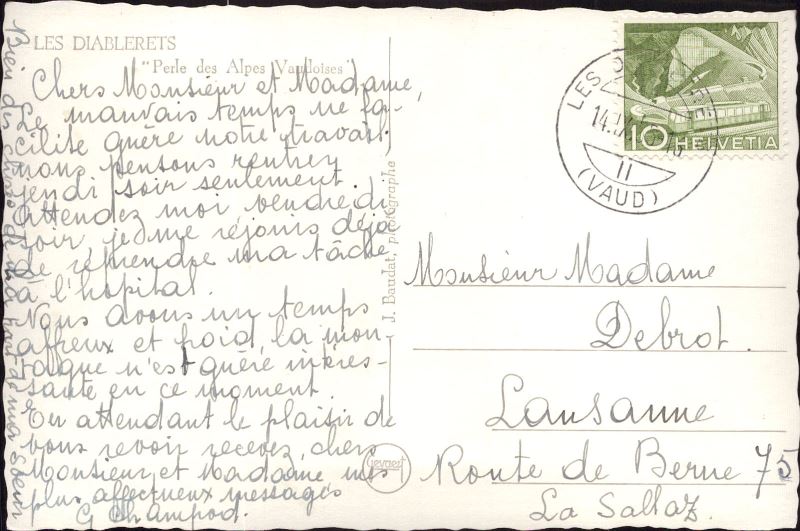 LES DIABLERETS
"Perle des Alpes Vaudoises"
Chers Monsieur et Madame,
Le mauvais temps ne fa-
cilite guère notre travail.
nous pensons rentrer
jeudi soir seulement.
Attendez moi vendredi
soir, je me réjouis déjà
de reprendre ma tâche
à l'hôpital.
Nous avons un temps
affreux et froid, la mon-
tagne n'est guère intéres-
sante en ce moment.
En attendant le plaisir de
vous revoir recevez, chers
Monsieur et Madame mes
plus affectueux messages
G Champod.
Bien des choses de ma sœur
J. Baudat, photographe
gevaert
LES DIABLERETS
14.IX.
11
(VAUD)
10 HELVETIA
Monsieur Madame
Debrot.
Lausanne
Route de Berne 75
La Sallaz.